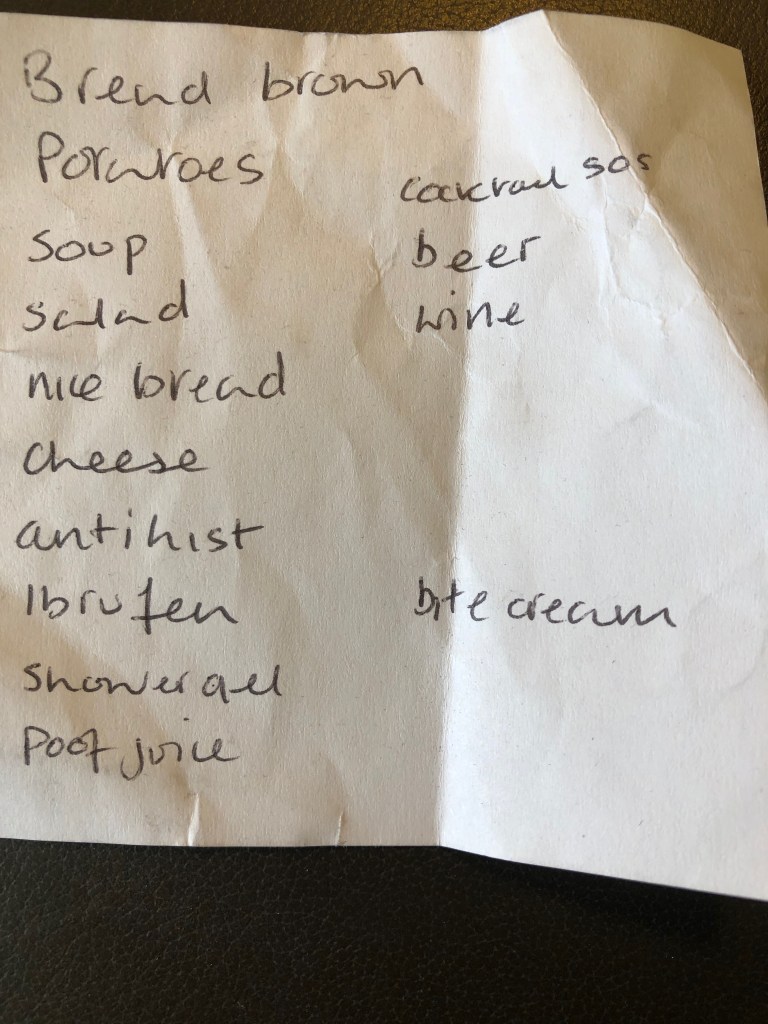 Bread brown
Potatoes
cocktail sos
soup
beer
salad
wine
nice bread
cheese
antihist
Ibrufen
bite cream
shower gel
Poof juice